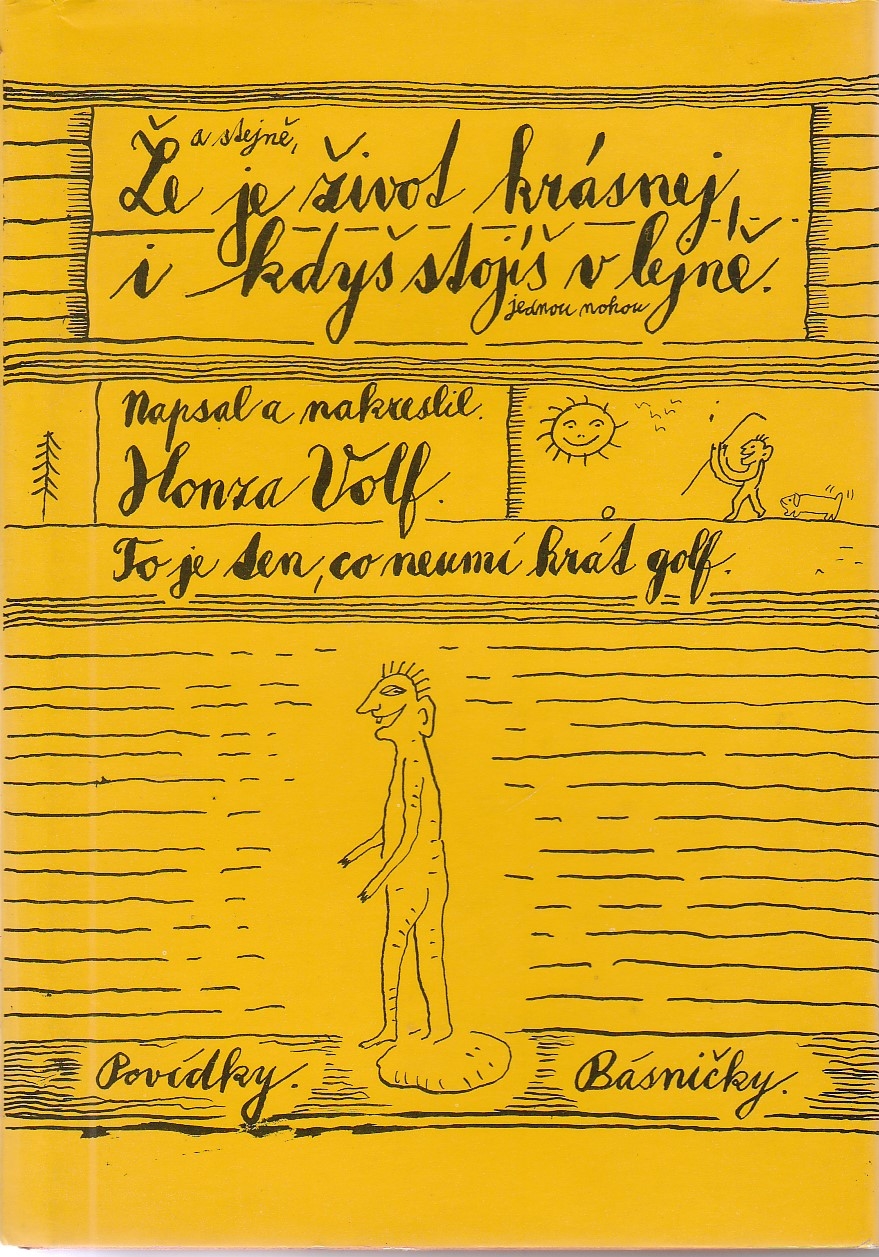 a stejně,
Že je život krásnej,
i kdyš stojíš v lejně.
jednou nohou
Napsal a nakreslil
Honza Volf.
To je ten, co neumí hrát golf.
Povídky. Básničky.